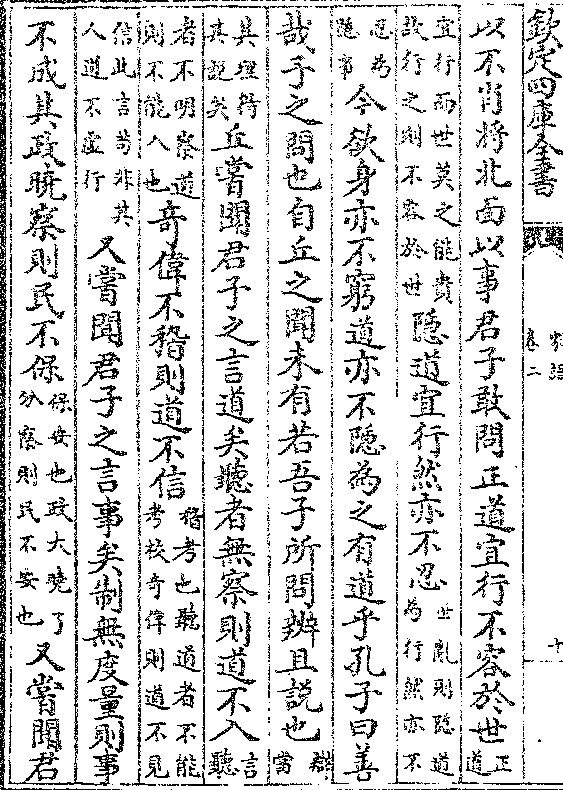 欽定四庫全書
家語
卷二
十
以不肖將北面以事君子敢問正道宜行不容於世正道
宜行而世莫之能貴故行之則不容於世隱道宜行然亦不忍世亂則隱道為行然亦不
忍為隱事今欲身亦不窮道亦不隱為之有道乎孔子曰善
哉子之問也自丘之聞未有若吾子所問辨且説也辯當
其理得其説矣丘嘗聞君子之言道矣聽者無察則道不入言聽
者不明察道則不能入也奇偉不稽則道不信稽考也聽道者不能考校奇偉則道不見
信此言苟非其人道不虛行又嘗聞君子之言事矣制無度量則事
不成其政曉察則民不保保安也政大曉了分察則民不安也又嘗聞君